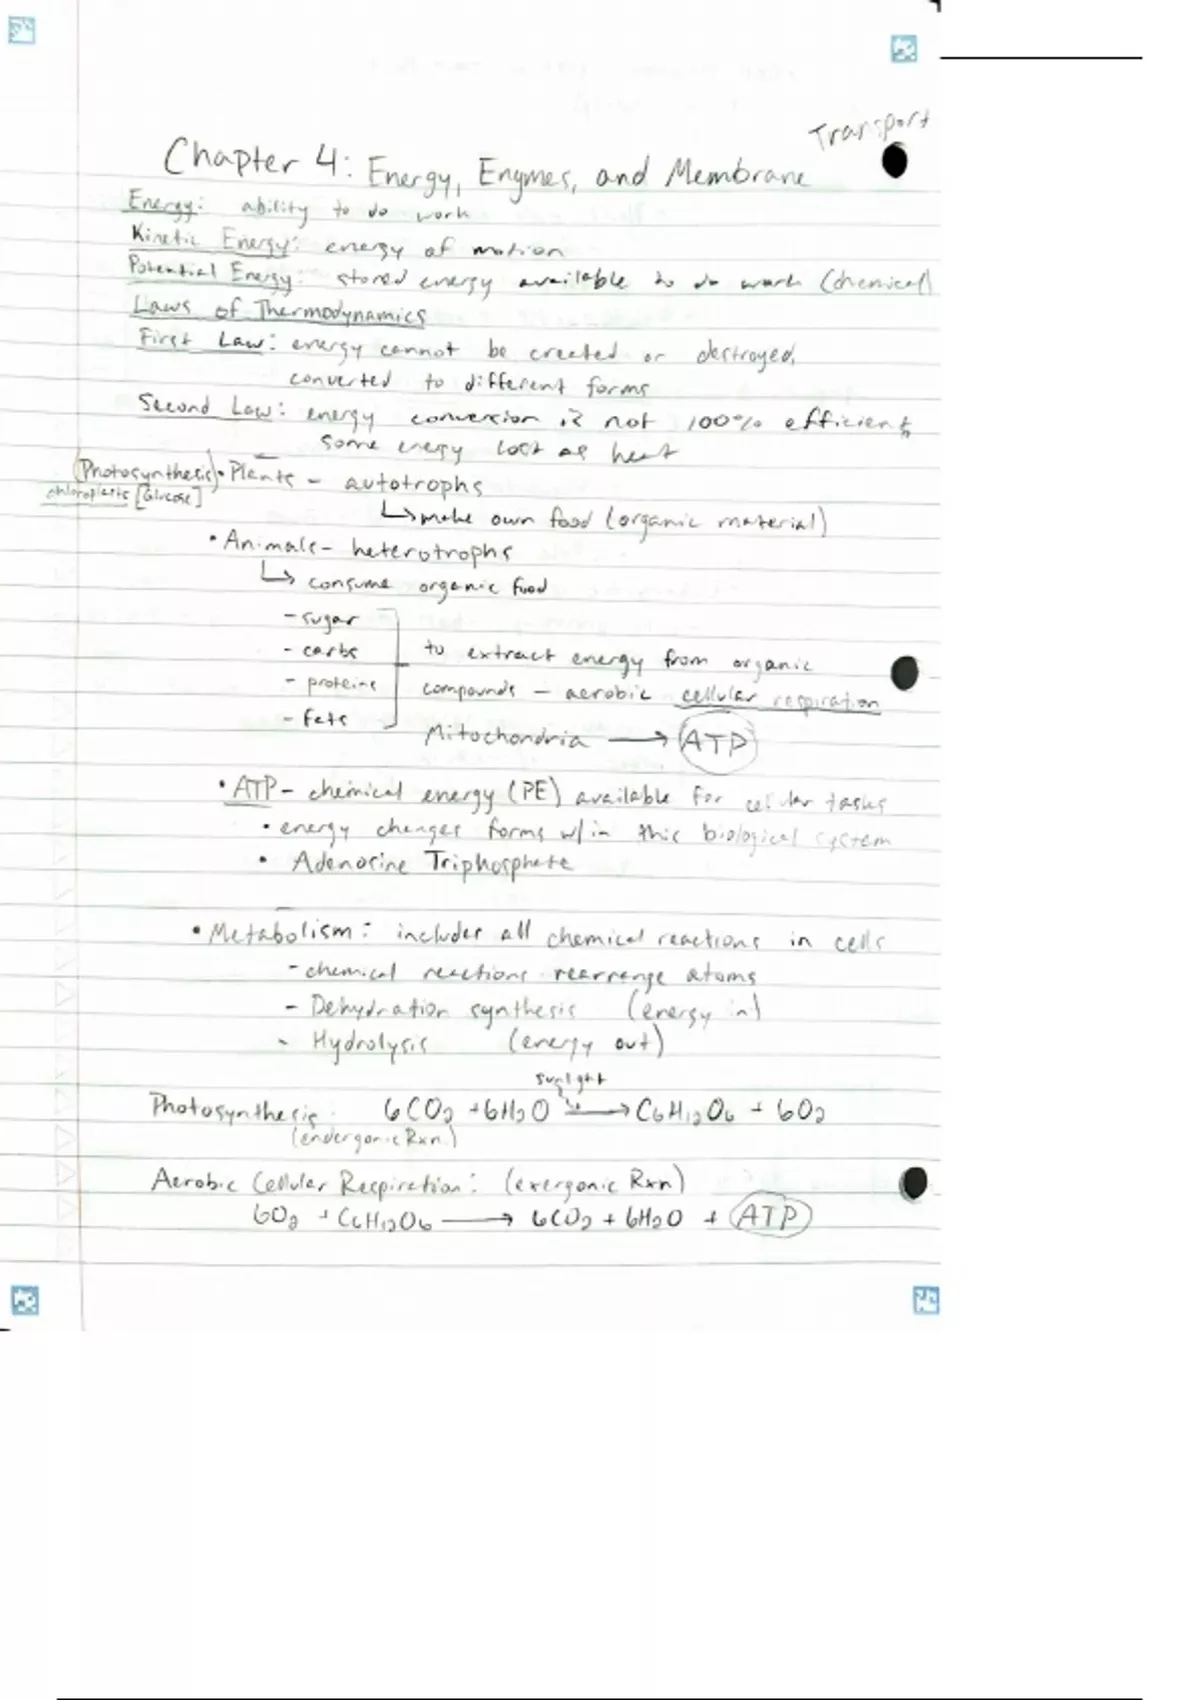 Transport
Chapter 4: Energy, Enymes, and Membrane
Energy: ability to do work
Kinetic Energy: energy of motion
Potential Energy: stored energy available to do work (chemical)
Laws of Thermodynamics
First Law: energy cannot be created or destroyed,
converted to different forms
Second Law: energy conversion is not 100% efficient,
some energy lost as heat
(Photosynthesis) • Plants - autotrophs
chloroplasts [Glucose]
↳ make own food (organic material)
• Animals - heterotrophs
↳ consume organic food
- sugar
- carbs to extract energy from organic
- proteins compounds - aerobic cellular respiration
- fats
Mitochondria → ATP
• ATP - chemical energy (PE) available for cellular tasks
• energy changes forms w/in this biological system
• Adenosine Triphosphate
• Metabolism: includes all chemical reactions in cells
- chemical reactions rearrange atoms
- Dehydration synthesis (energy in)
- Hydrolysis (energy out)
sunlight
Photosynthesis: 6CO2 + 6H2O → C6H12O6 + 6O2
(endergonic Rxn)
Aerobic Cellular Respiration: (exergonic Rxn)
6O2 + C6H12O6 → 6CO2 + 6H2O + ATP